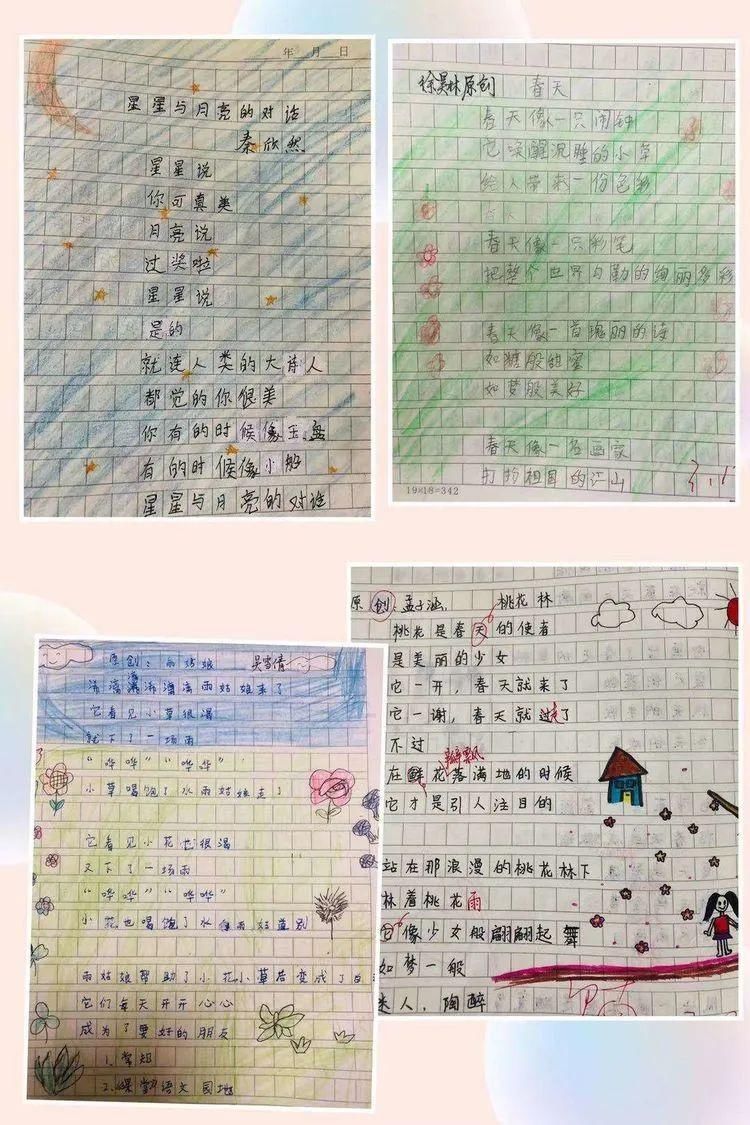 年 月 日
星星与月亮的对话
秦欣然
星星说
你可真美
月亮说
过奖啦
星星说
是的
就连人类的大诗人
都觉的你很美
你有的时候像玉盘
有的时候像小船
星星与月亮的对话
徐昊林原创 春天
春天像一只闹钟
它唤醒沉睡的小草
给人带来一份色彩
春天像一只彩笔
把整个世界勾勒的绚丽多彩
春天像一首瑰丽的诗
如糖般甜蜜
如梦般美好
春天像一名画家
打扮祖国的江山
19×18=342
原创:雨姑娘 吴雪倩
潇潇潇潇雨姑娘来了
它看见小草很渴
就下了一场雨
“哗哗”“哗哗”
小草喝饱了水雨姑娘走了
它看见小花也很渴
又下了一场雨
“哗哗”“哗哗”
小花也喝饱了水和雨姑道别
雨姑娘帮助了小花小草后变成了白
它们每天开开心心
成为了要好的朋友
1.常知
2.课堂语文园地
原创:孟子涵 桃花林
桃花是春天的使者
是美丽的少女
它一开,春天就来了
它一谢,春天就过走了
不过
瓣飘
在鲜花落满地的时候
它才是引人注目的
站在那浪漫的桃花林下
林着桃花雨
它像少女般翩翩起舞
如梦一般
迷人,陶醉